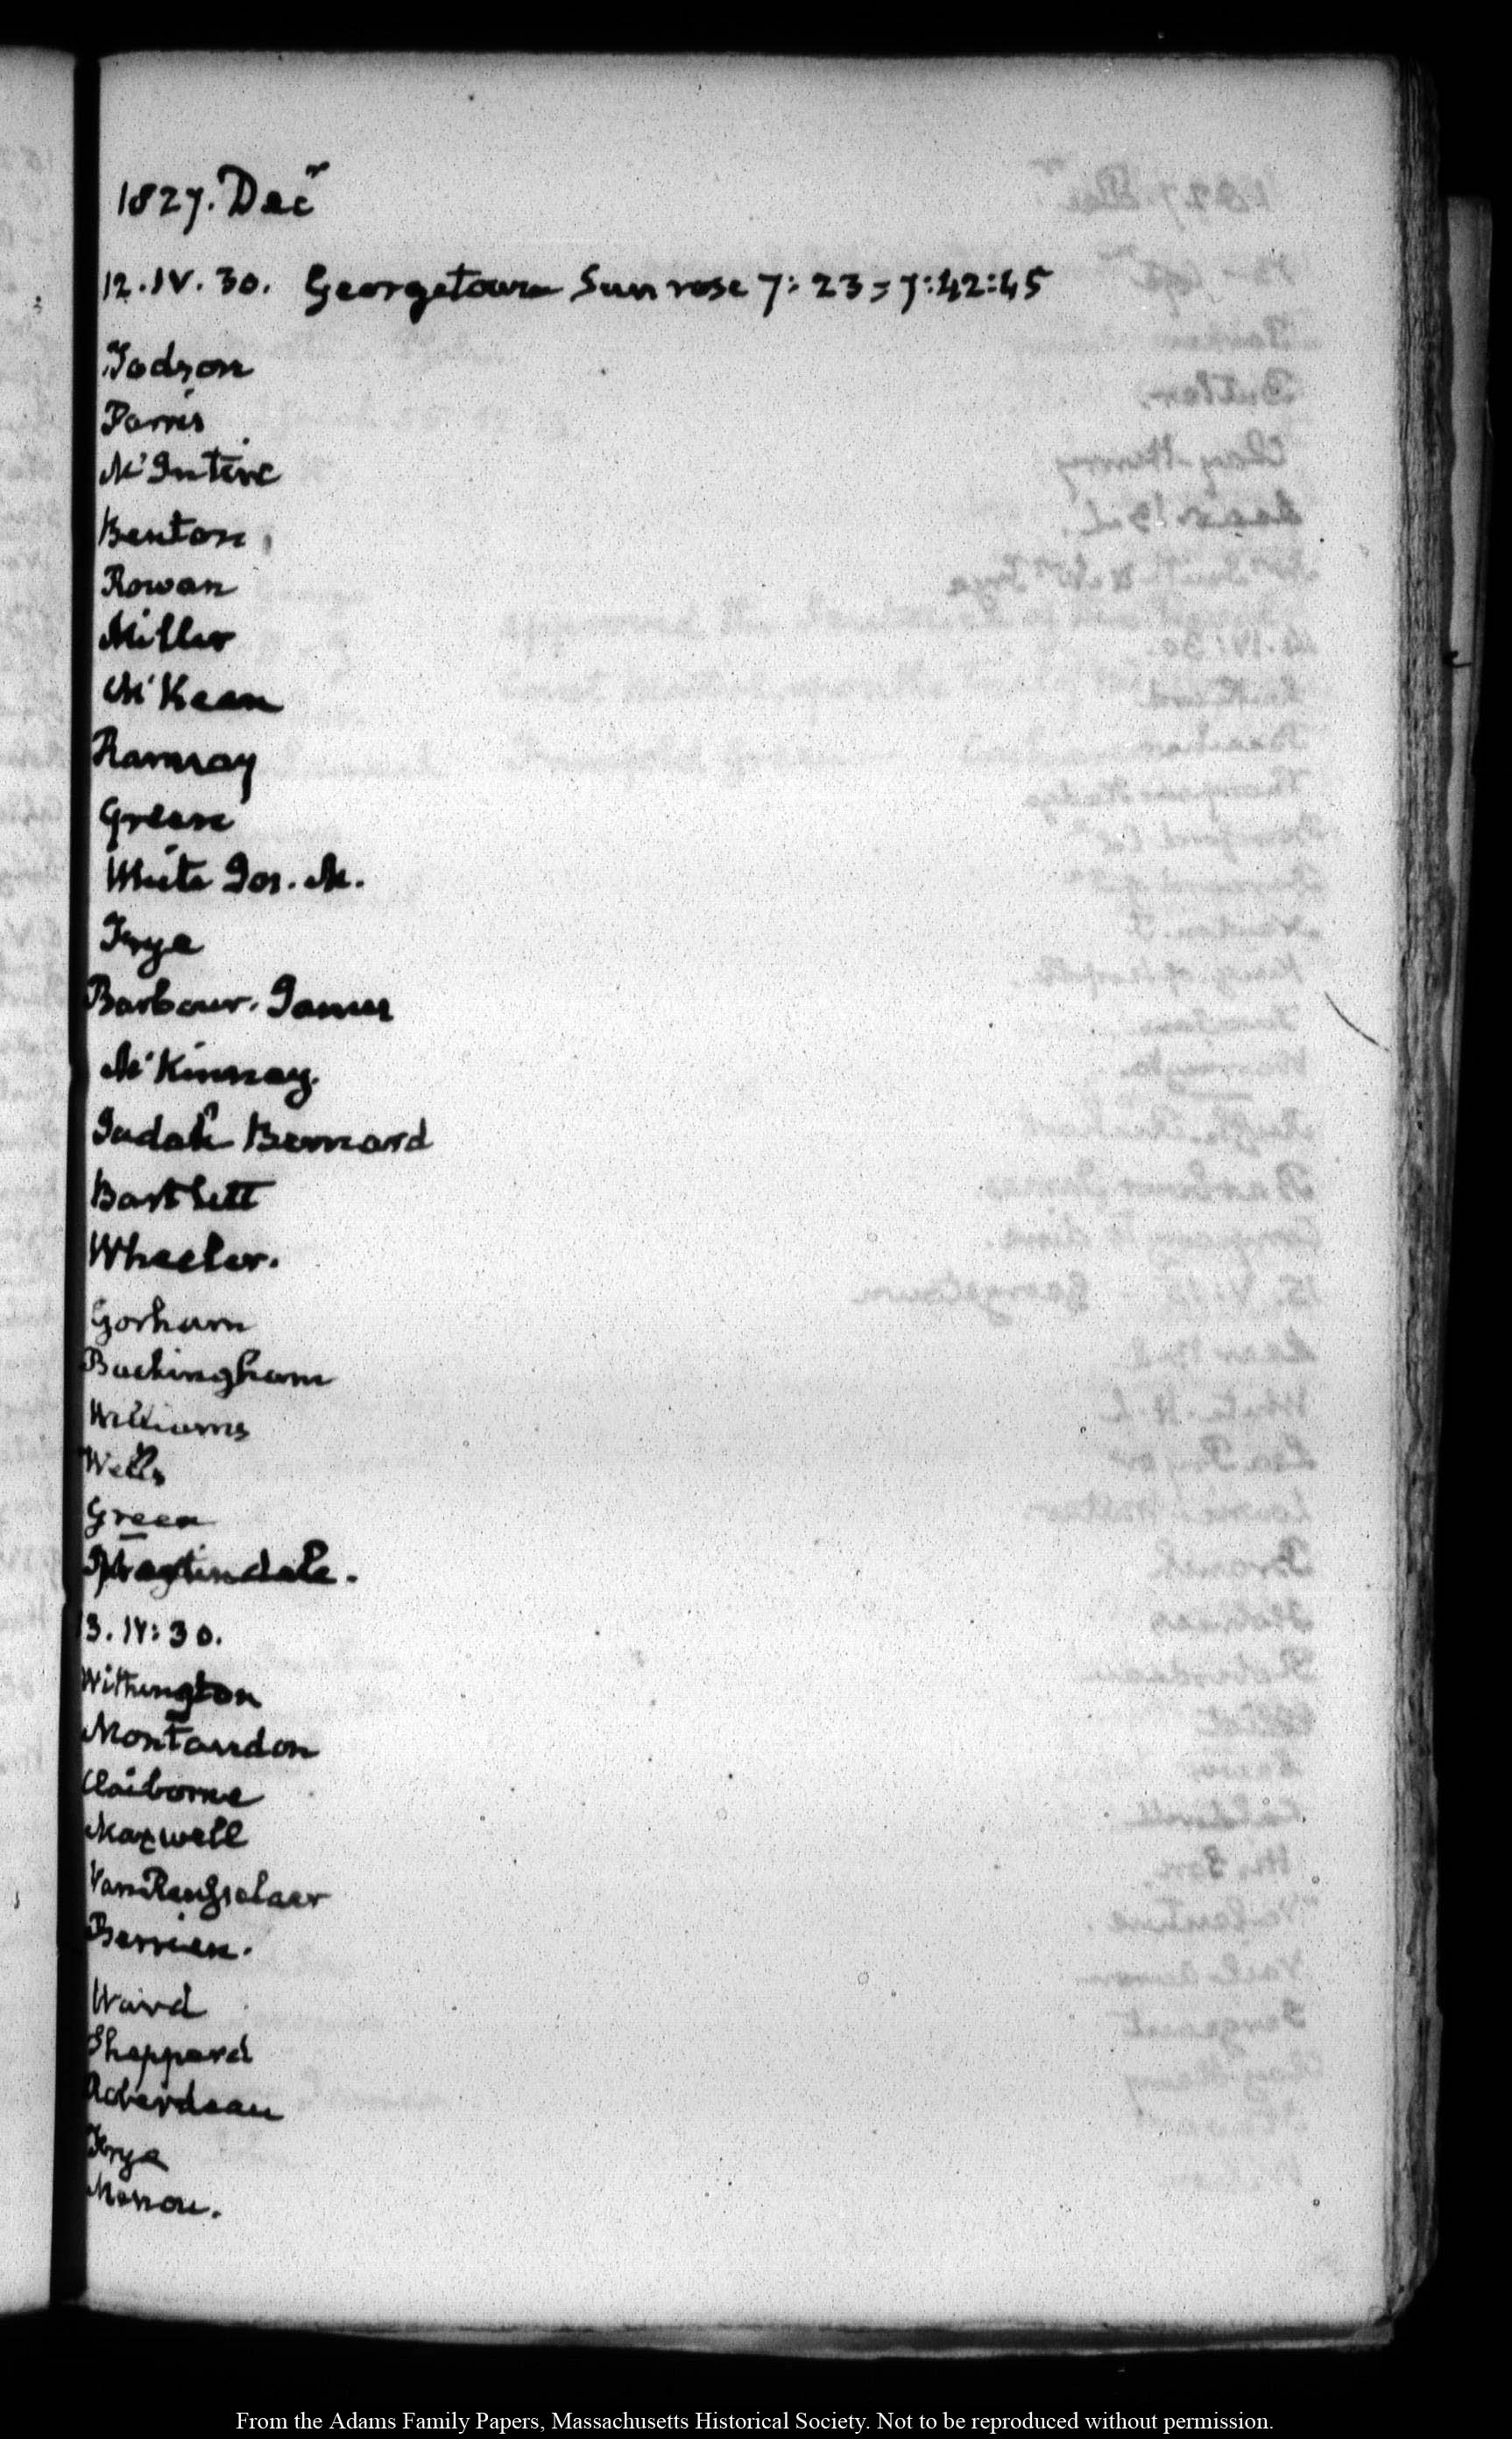 1827. Decr
12. IV. 30. Georgetown Sun rose 7: 23 = 7:42:45
Dodson
Parris
McIntire
Benton
Rowan
Miller
McKean
Ramsay
Green
White Jos. M.
Frye
Barbour. James
McKinney.
Judah Bernard
Bartlett
Wheeler.
Gorham
Buckingham
Williams
Wells
Green
Martindale.
13. IV: 30.
Withington
Montandon
Claiborne
Maxwell
Van Rensselaer
Berrien.
Ward
Sheppard
Roberdeau
Frye
From the Adams Family Papers, Massachusetts Historical Society. Not to be reproduced without permission.